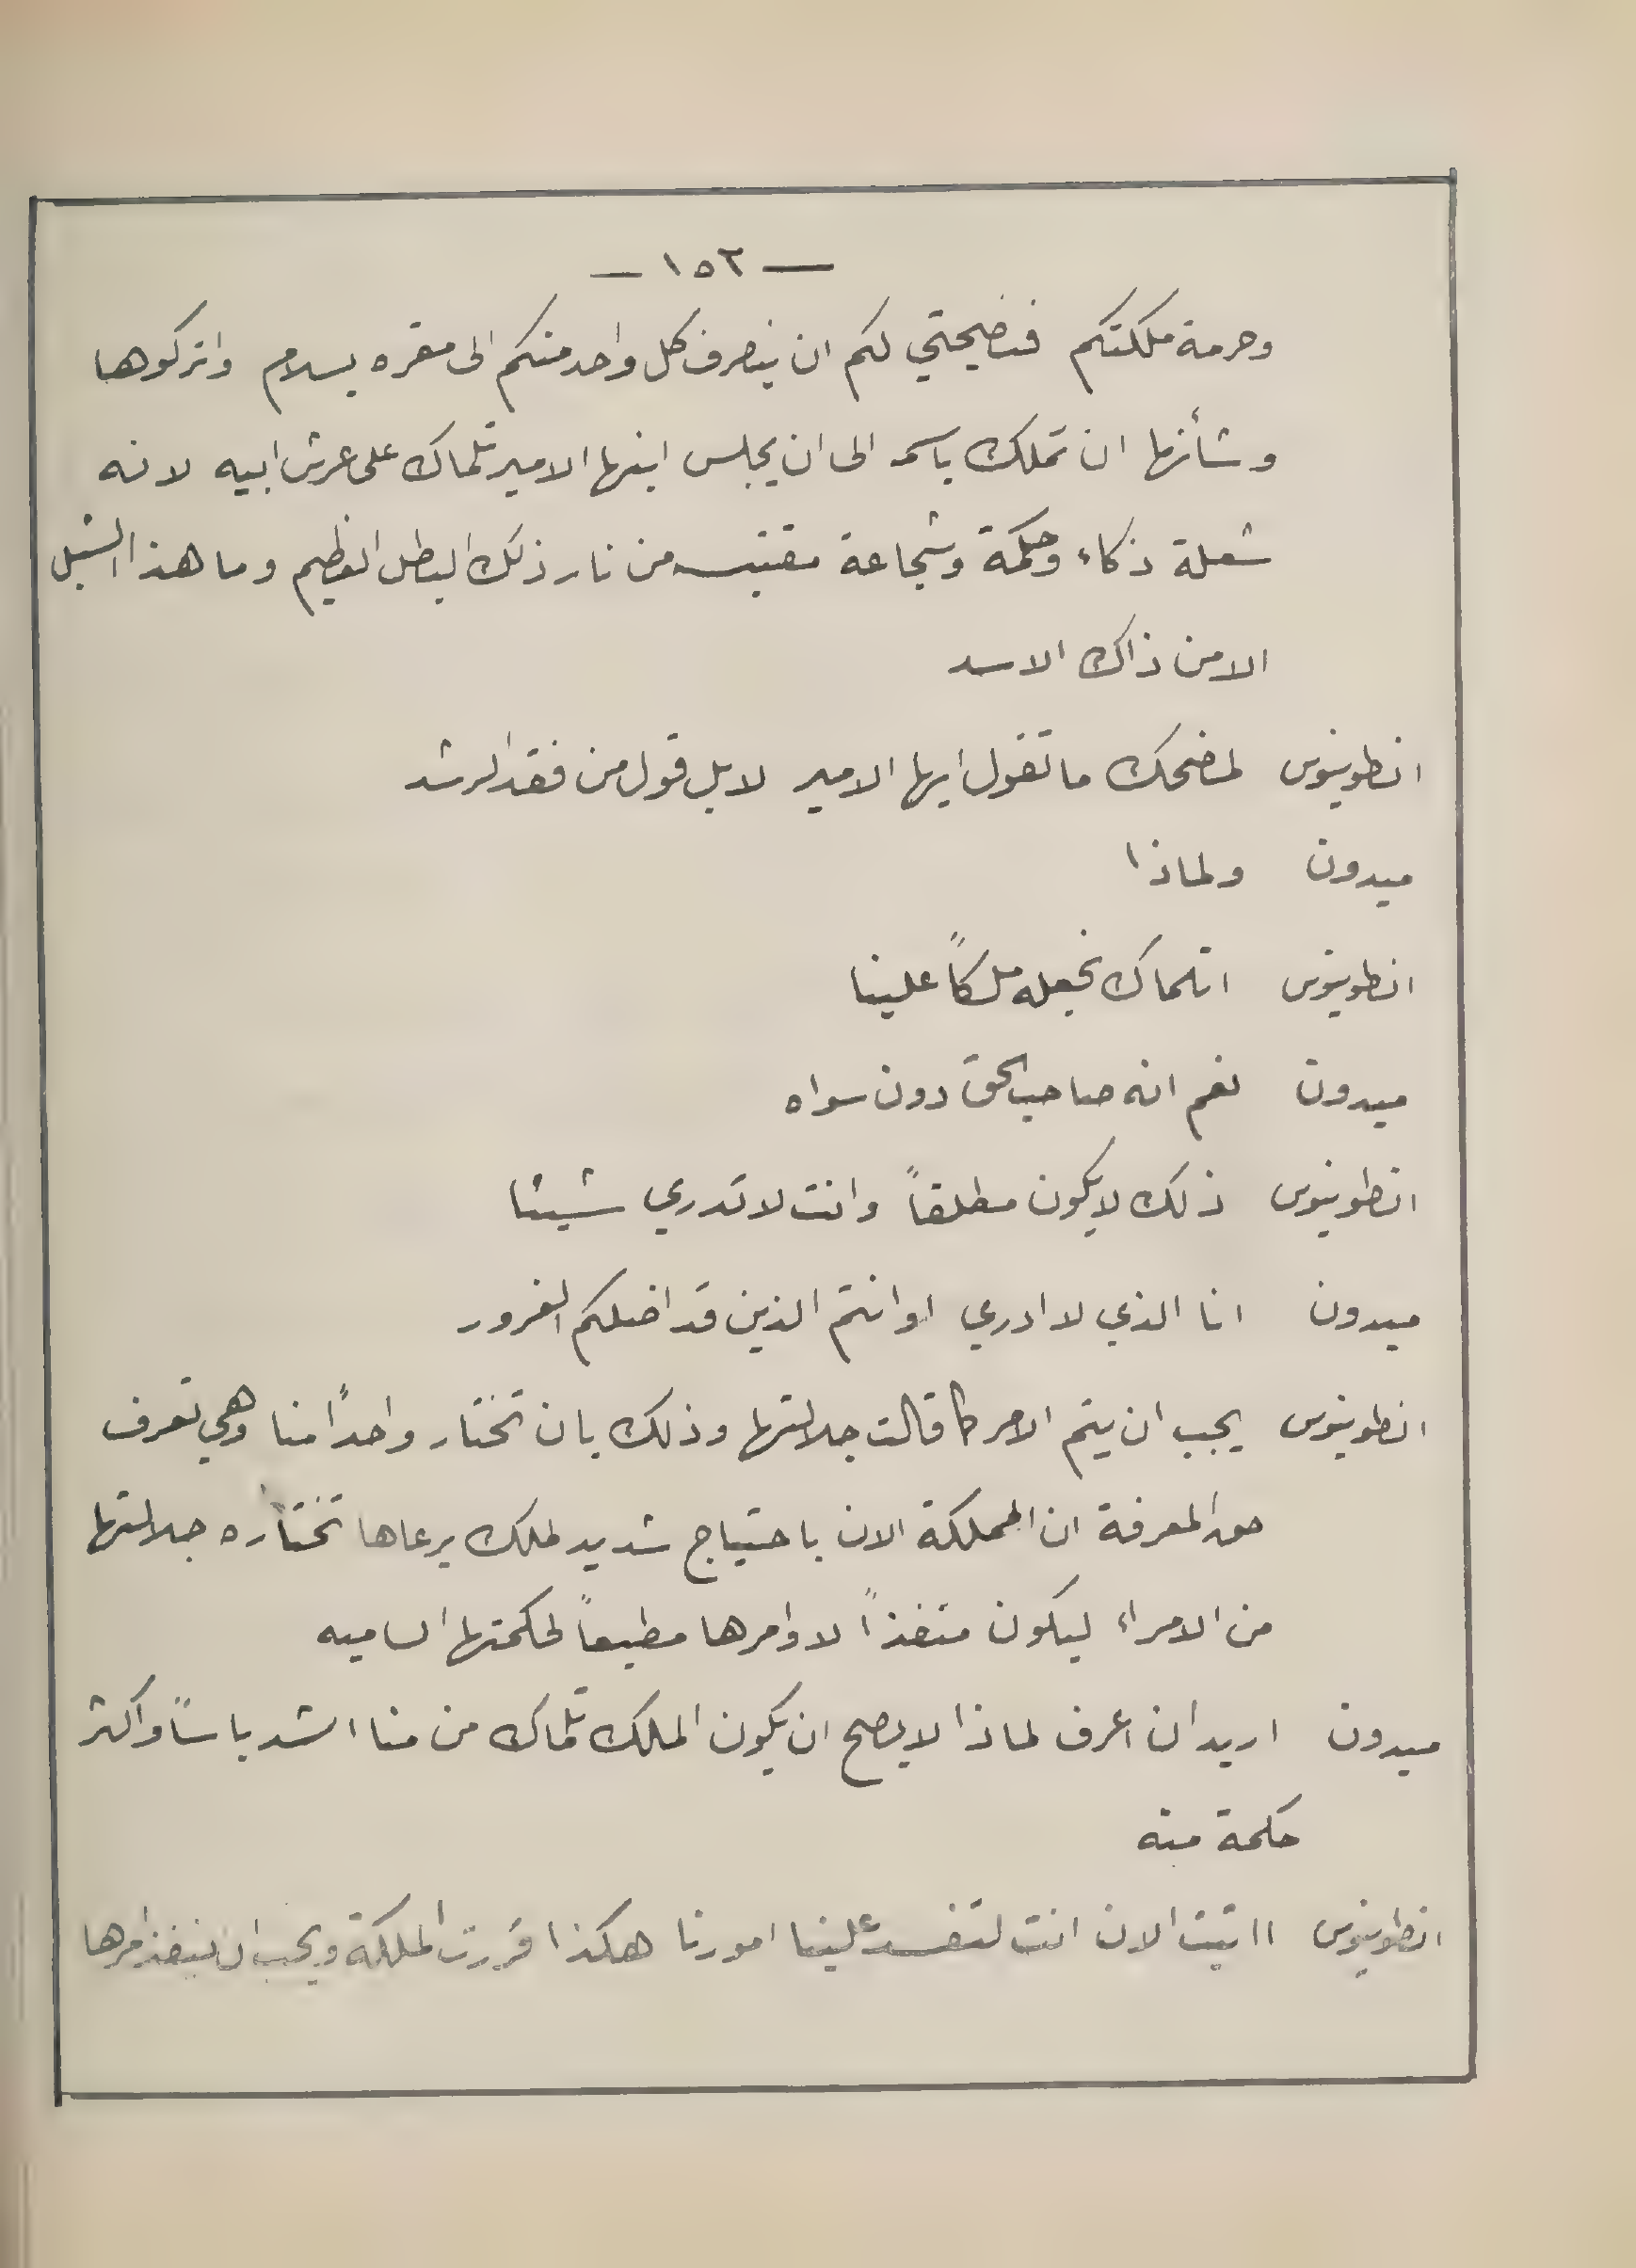 — ١٥٢ —
وحرمة ملكتكم فنصيحتي لكم ان ينصرف كل واحد منكم الى مقره بسلام واتركوها
وشأنها ان تملك باسمه الى ان يجلس ابنها الامير تلماك على عرش ابيه لانه
شعلة ذكاء وحكمة وشجاعة مقتبسه من نار ذلك البطل العظيم وما هذا الشبل
الا من ذاك الاسد
انطوينوس لمضحك ما تقول ايها الامير لا بل قول من فقد الرشد
ميدون ولماذا
انطوينوس اتلماك نجعله ملكاً علينا
ميدون نعم انه صاحب الحق دون سواه
انطوينوس ذلك لا يكون مطلقاً وانت لا تدري شيئا
ميدون انا الذي لا ادري او انتم الذين قد اضلكم الغرور
انطوينوس يجب ان يتم الامر كما قالت جلالتها وذلك بان تختار واحداً منا وهي تعرف
حق المعرفة ان المملكة الان باحتياج شديد لملك يرعاها تختاره جلالتها
من الامراء ليكون منفذاً لاوامرها مطيعاً لحكمتها الساميه
ميدون اريد ان اعرف لماذا لا يصح ان يكون الملك تلماك من منا اشد باساً واكثر
حكمة منه
انطوينوس ااتيت الان انت لتفسد علينا امورنا هكذا قررت الملكة ويجب ان ينفذ امرها